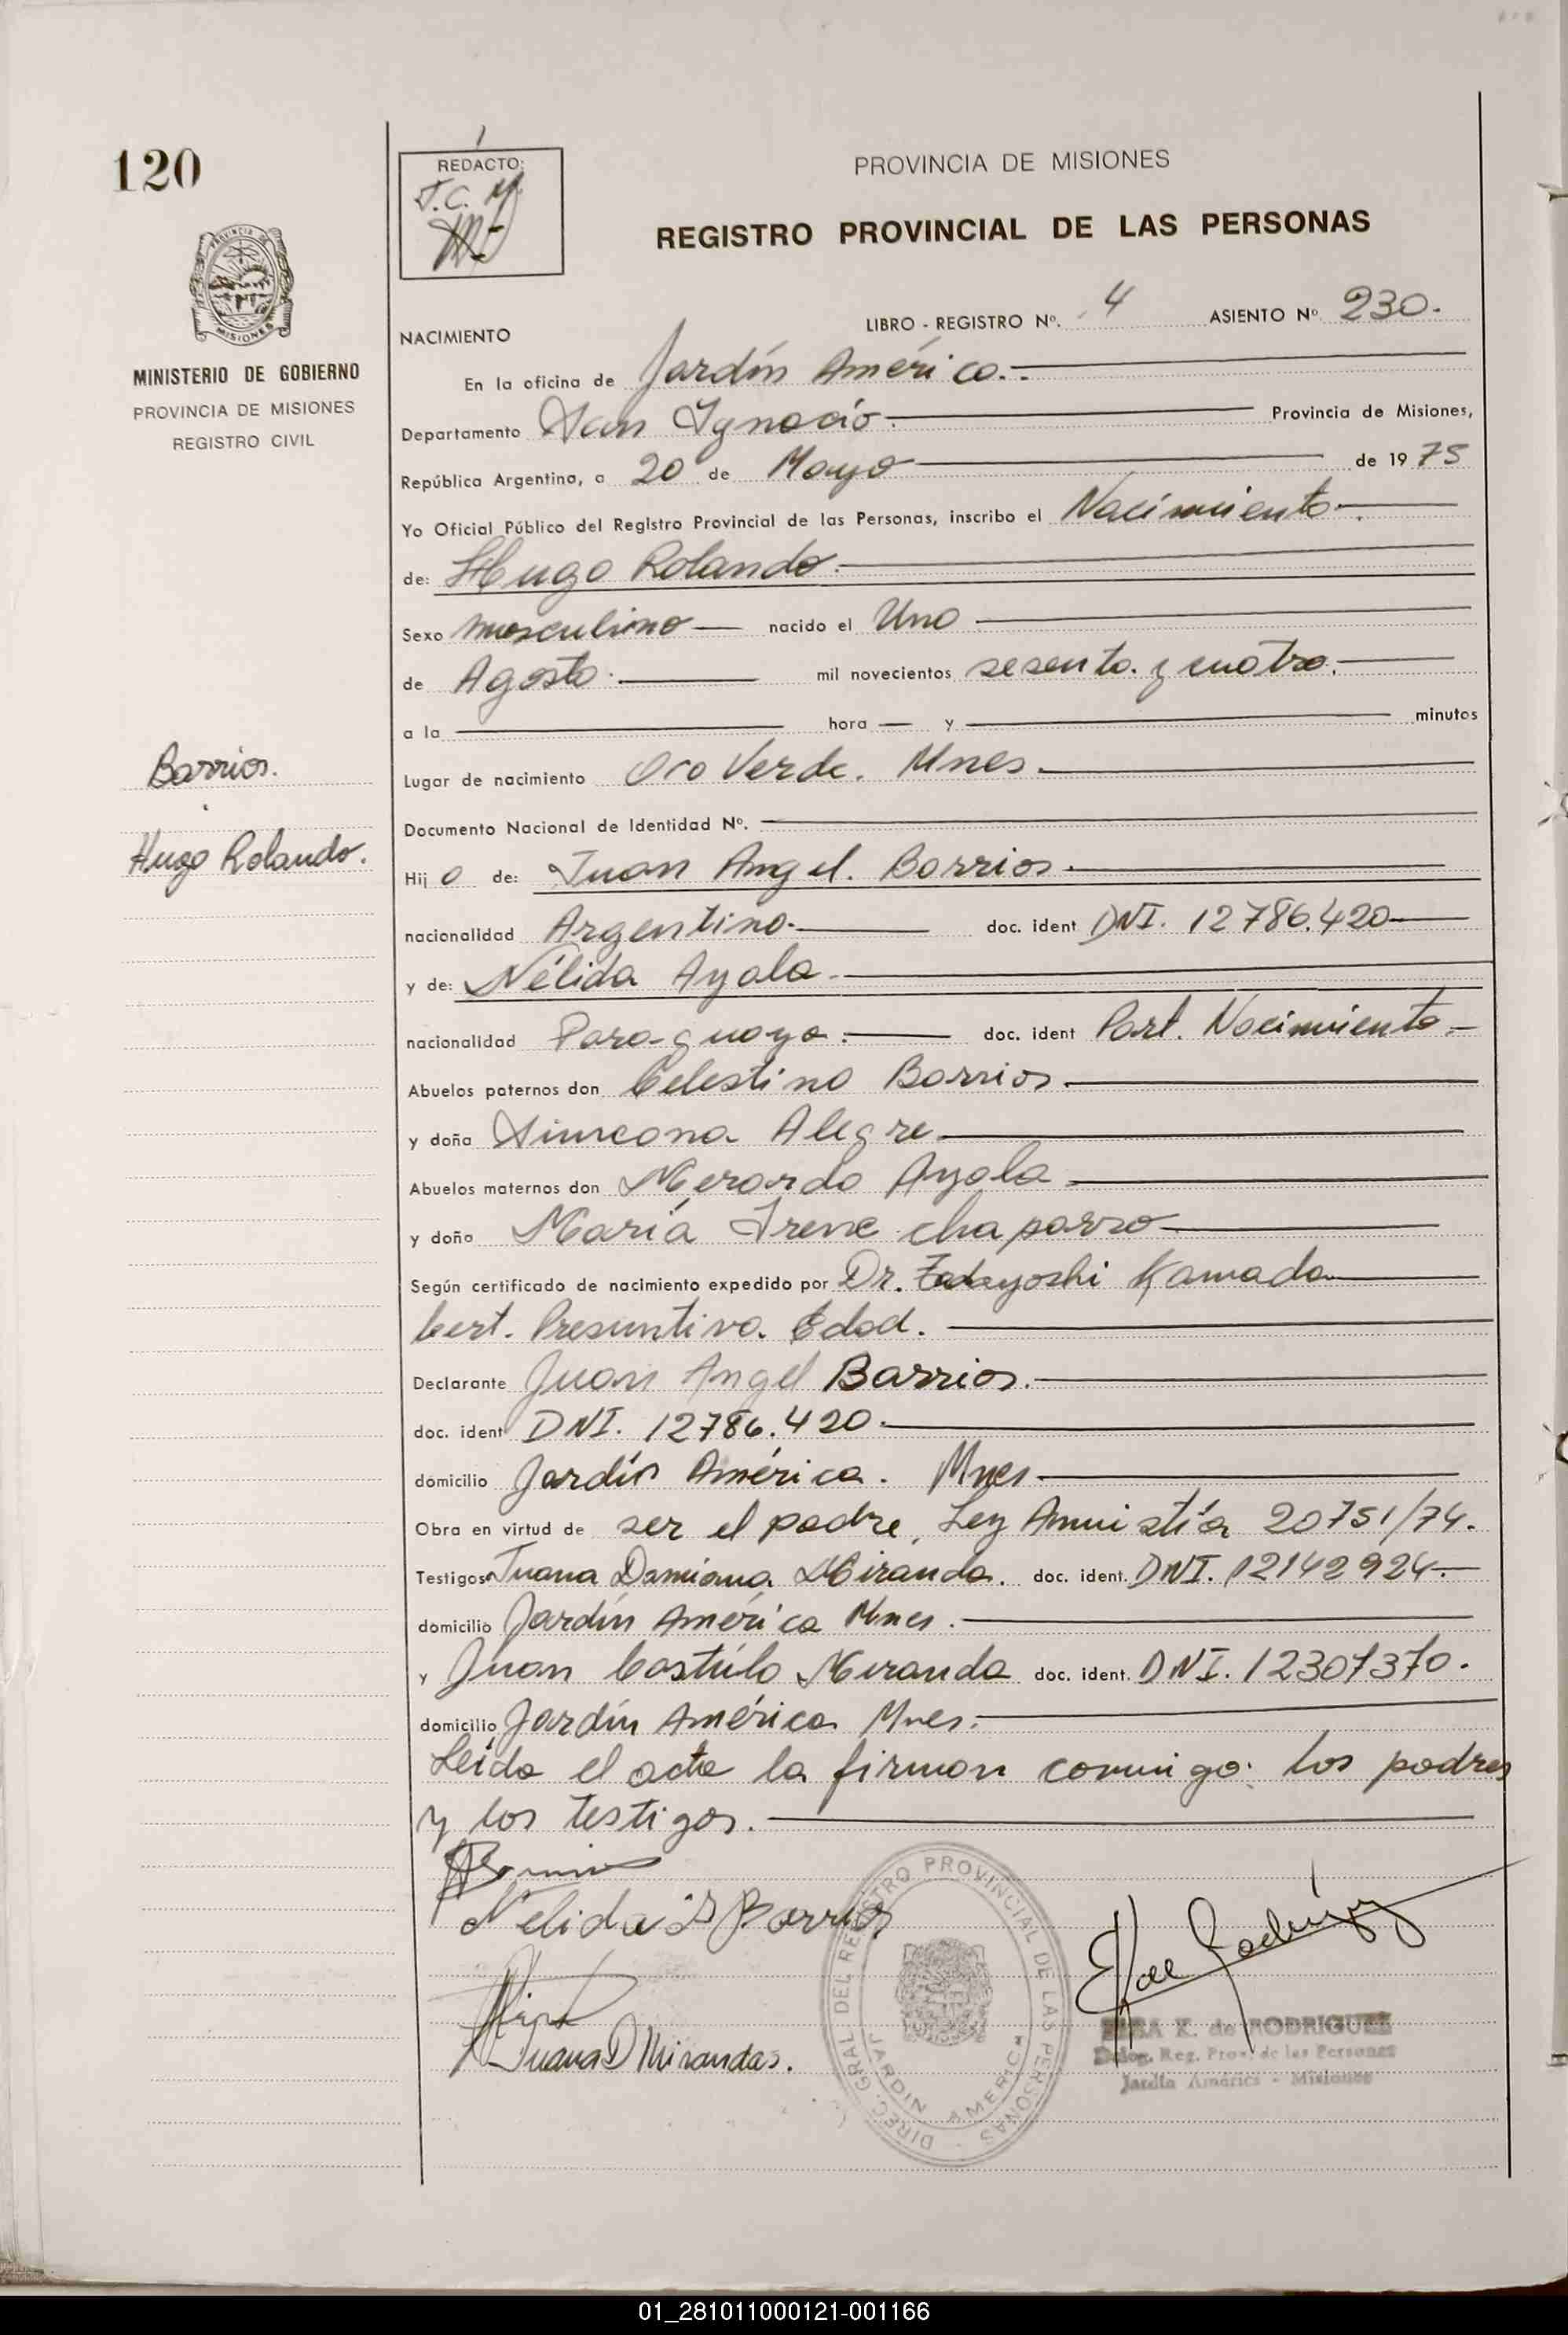 120
REDACTO:
J.C. M.
PROVINCIA DE MISIONES
REGISTRO PROVINCIAL DE LAS PERSONAS
PROVINCIA DE MISIONES
MINISTERIO DE GOBIERNO
PROVINCIA DE MISIONES
REGISTRO CIVIL
NACIMIENTO LIBRO - REGISTRO Nº. 4 ASIENTO Nº 230.
En la oficina de Jardín América.
Departamento San Ignacio. Provincia de Misiones,
República Argentina, a 20 de Mayo de 1975
Yo Oficial Público del Registro Provincial de las Personas, inscribo el Nacimiento.
de: Hugo Rolando.
Sexo masculino nacido el Uno
de Agosto. mil novecientos sesenta y cuatro.
a la hora y minutos
Barrios.
Hugo Rolando.
Lugar de nacimiento Oro Verde. Mnes.
Documento Nacional de Identidad Nº.
Hijo de: Juan Angel. Barrios.
nacionalidad Argentina. doc. ident DNI. 12786.420
y de: Nélida Ayala.
nacionalidad Paraguaya. doc. ident Part. Nacimiento.
Abuelos paternos don Celestino Barrios.
y doña Simeona Alegre.
Abuelos maternos don Merardo Ayala
y doña María Irene chaparro
Según certificado de nacimiento expedido por Dr. Tadayoshi Kamada
Cert. Presuntiva. Edad.
Declarante Juan Angel Barrios.
doc. ident DNI. 12786.420.
domicilio Jardín América. Mnes
Obra en virtud de ser el padre, Ley Amnistía 20751/74.
Testigos Juana Damiana Miranda. doc. ident. DNI. 12142924
domicilio Jardín América Mnes.
y Juan Castúlo Miranda doc. ident. DNI. 12307370.
domicilio Jardín América Mnes.
Leída el acta la firman conmigo: los padres
y los testigos.
Nelida D Barrios
Juana D Mirandas.
DIREC. GRAL DEL REGISTRO PROVINCIAL DE LAS PERSONAS
JARDIN AMERICA
K. de RODRIGUEZ
Deleg. Reg. Prov. de las Personas
Jardín América - Misiones
01_281011000121-001166